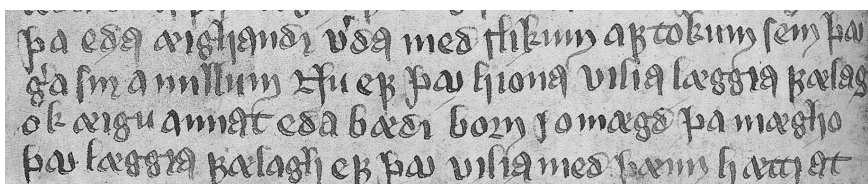 þa eda æighandi v͛da med slikum af tokum sem þau
g͛a sin a millum Nu ef þau hiona vilia læggia fælag
ok æigu annat eda bædi born j omægd þa mægho
þau læggia fælagh ef þau vilia med þæim hætti at